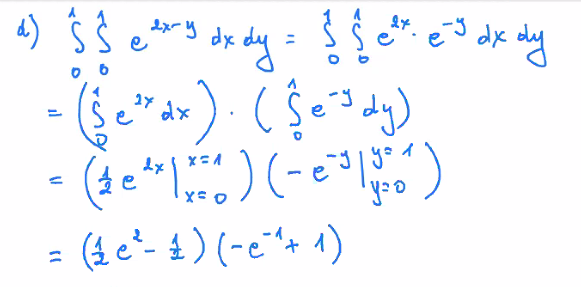 d) ∫₀¹ ∫₀¹ e^{2x-y} dx dy = ∫₀¹ ∫₀¹ e^{2x} · e^{-y} dx dy
= (∫₀¹ e^{2x} dx) · (∫₀¹ e^{-y} dy)
= (½ e^{2x} |_{x=0}^{x=1}) (-e^{-y} |_{y=0}^{y=1})
= (½ e² - ½) (-e^{-1} + 1)